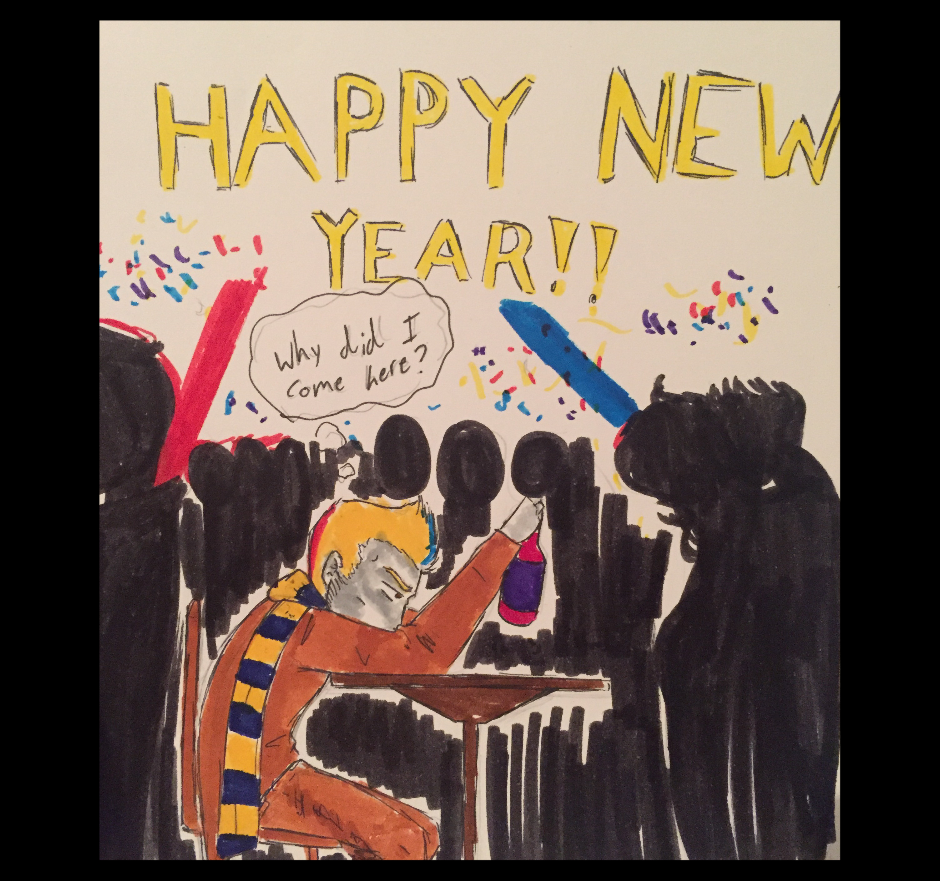 HAPPY NEW
YEAR!!
Why did I
come here?